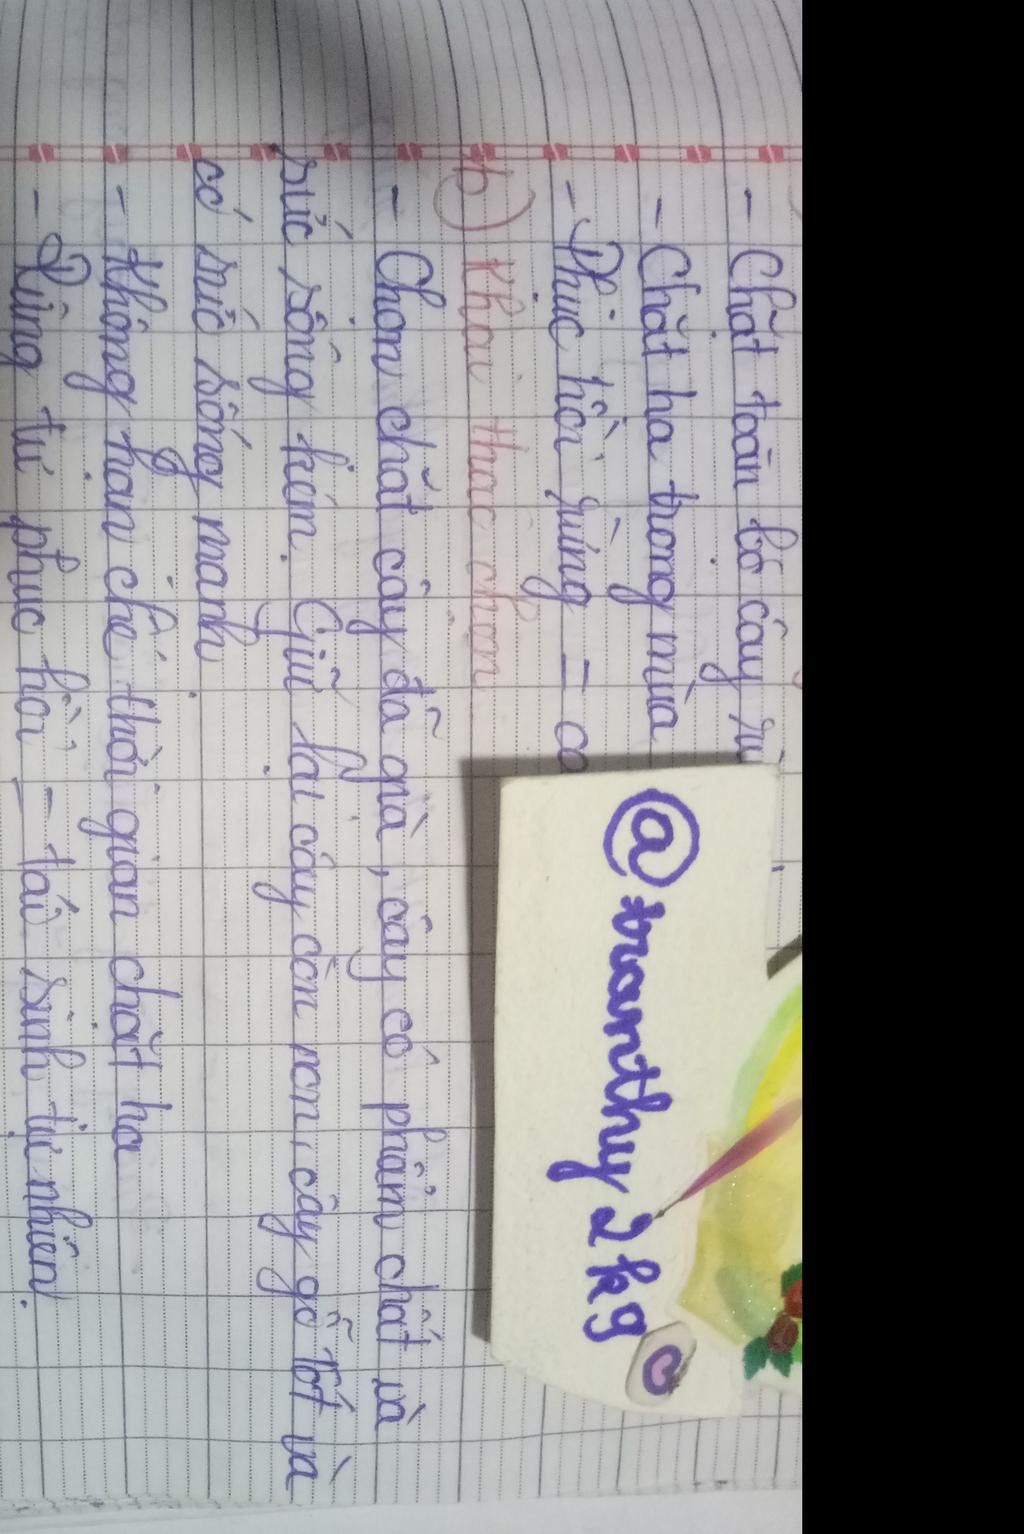 - Chặt toàn bộ cây
- Chặt hạ trong mùa
- Phục hồi rừng =
b) Khai thác chọn
- Chọn chặt cây đã già, cây có phẩm chất và
sức sống kém. Giữ lại cây còn non, cây gỗ tốt và
có sức sống mạnh
- Không hạn chế thời gian chặt hạ
- Rừng tự phục hồi = tái sinh tự nhiên.
@tranthy2k9